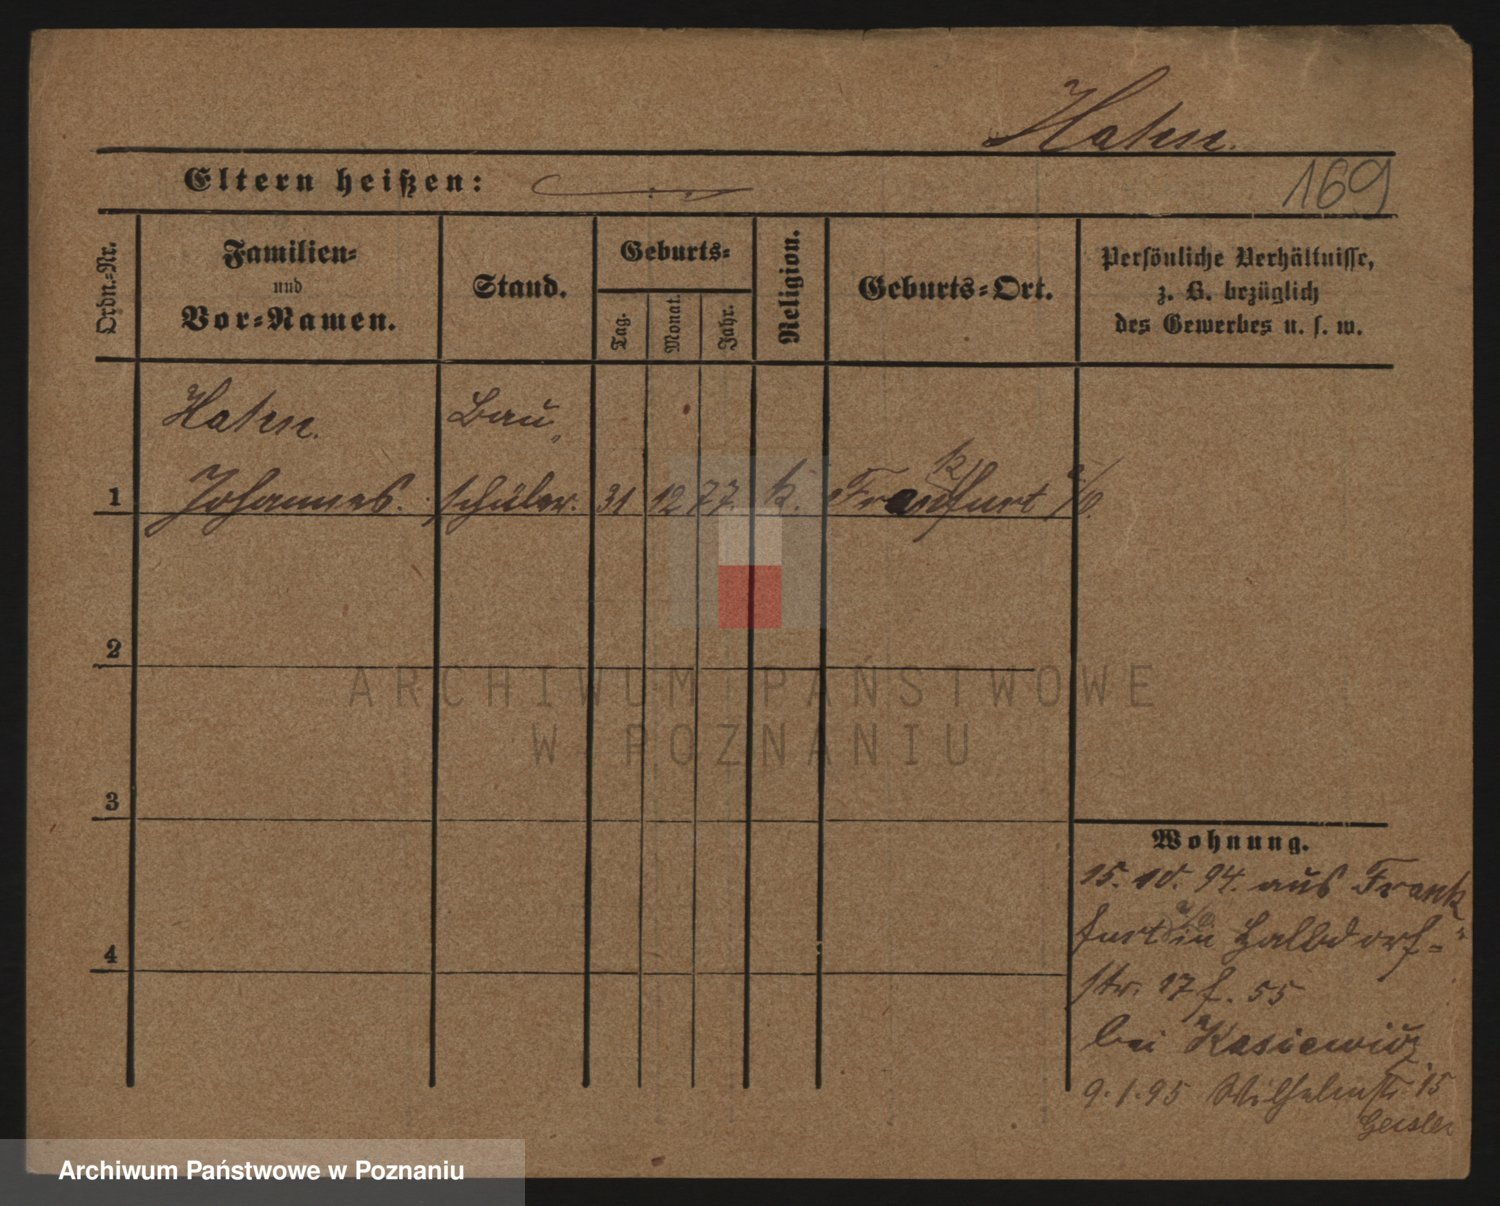 Hahn.
Eltern heißen:
169
Ordn.-Nr.
Familien-
und
Vor-Namen.
Stand.
Geburts-
Tag.
Monat.
Jahr.
Religion.
Geburts-Ort.
Persönliche Verhältnisse,
z. B. bezüglich
des Gewerbes u. s. w.
Hahn. Bau„
1 Johannes. schüler. 31 12 77. k. Frankfurt a/O.
2
3
4
Wohnung.
15. 10. 94. aus Frank
furt a/O in Halbdorf-
str. 17 f. 55
bei Kasiewicz
9. 1. 95 Wilhelmstr. 15
Geisler
ARCHIWUM PAŃSTWOWE
W POZNANIU
Archiwum Państwowe w Poznaniu